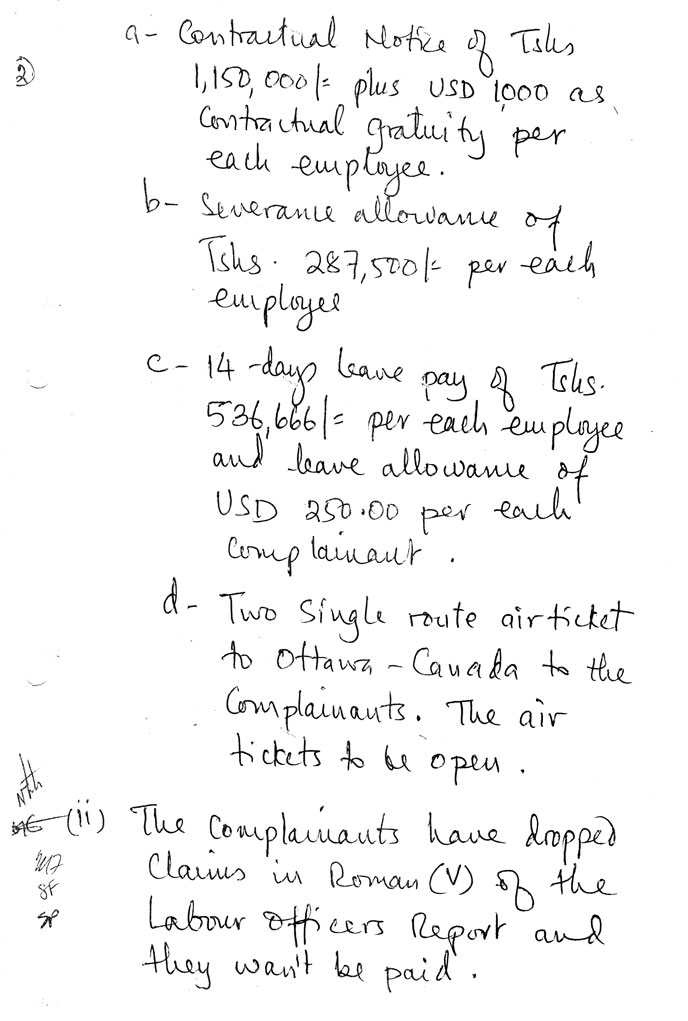 a- Contractual Notice of Tshs
②
1,150,000/= plus USD 1,000 as
Contractual gratuity per
each employee.
b- Severance allowance of
Tshs. 287,500/= per each
employee
c- 14-days leave pay of Tshs.
536,666/= per each employee
and leave allowance of
USD 250.00 per each
Complainant.
d- Two Single route air ticket
to Ottawa - Canada to the
Complainants. The air
tickets to be open.
(ii) The Complainants have dropped
Claims in Roman (V) of the
Labour Officers Report and
SF
they wan't be paid.
SP